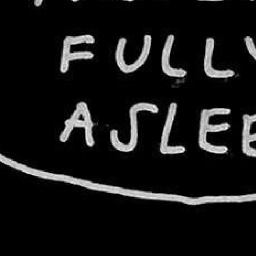 FULLY
ASLEEP